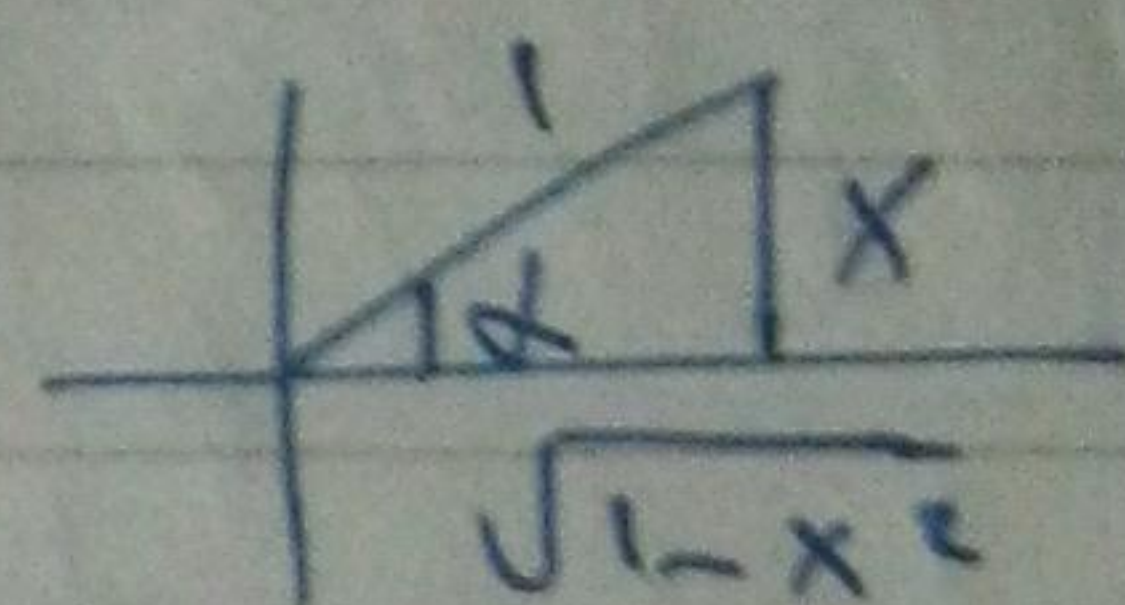 1
x
α
√1-x²